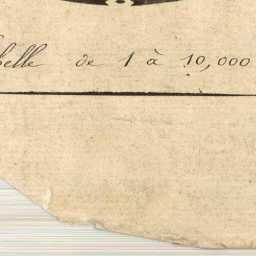 helle de 1 à 10,000